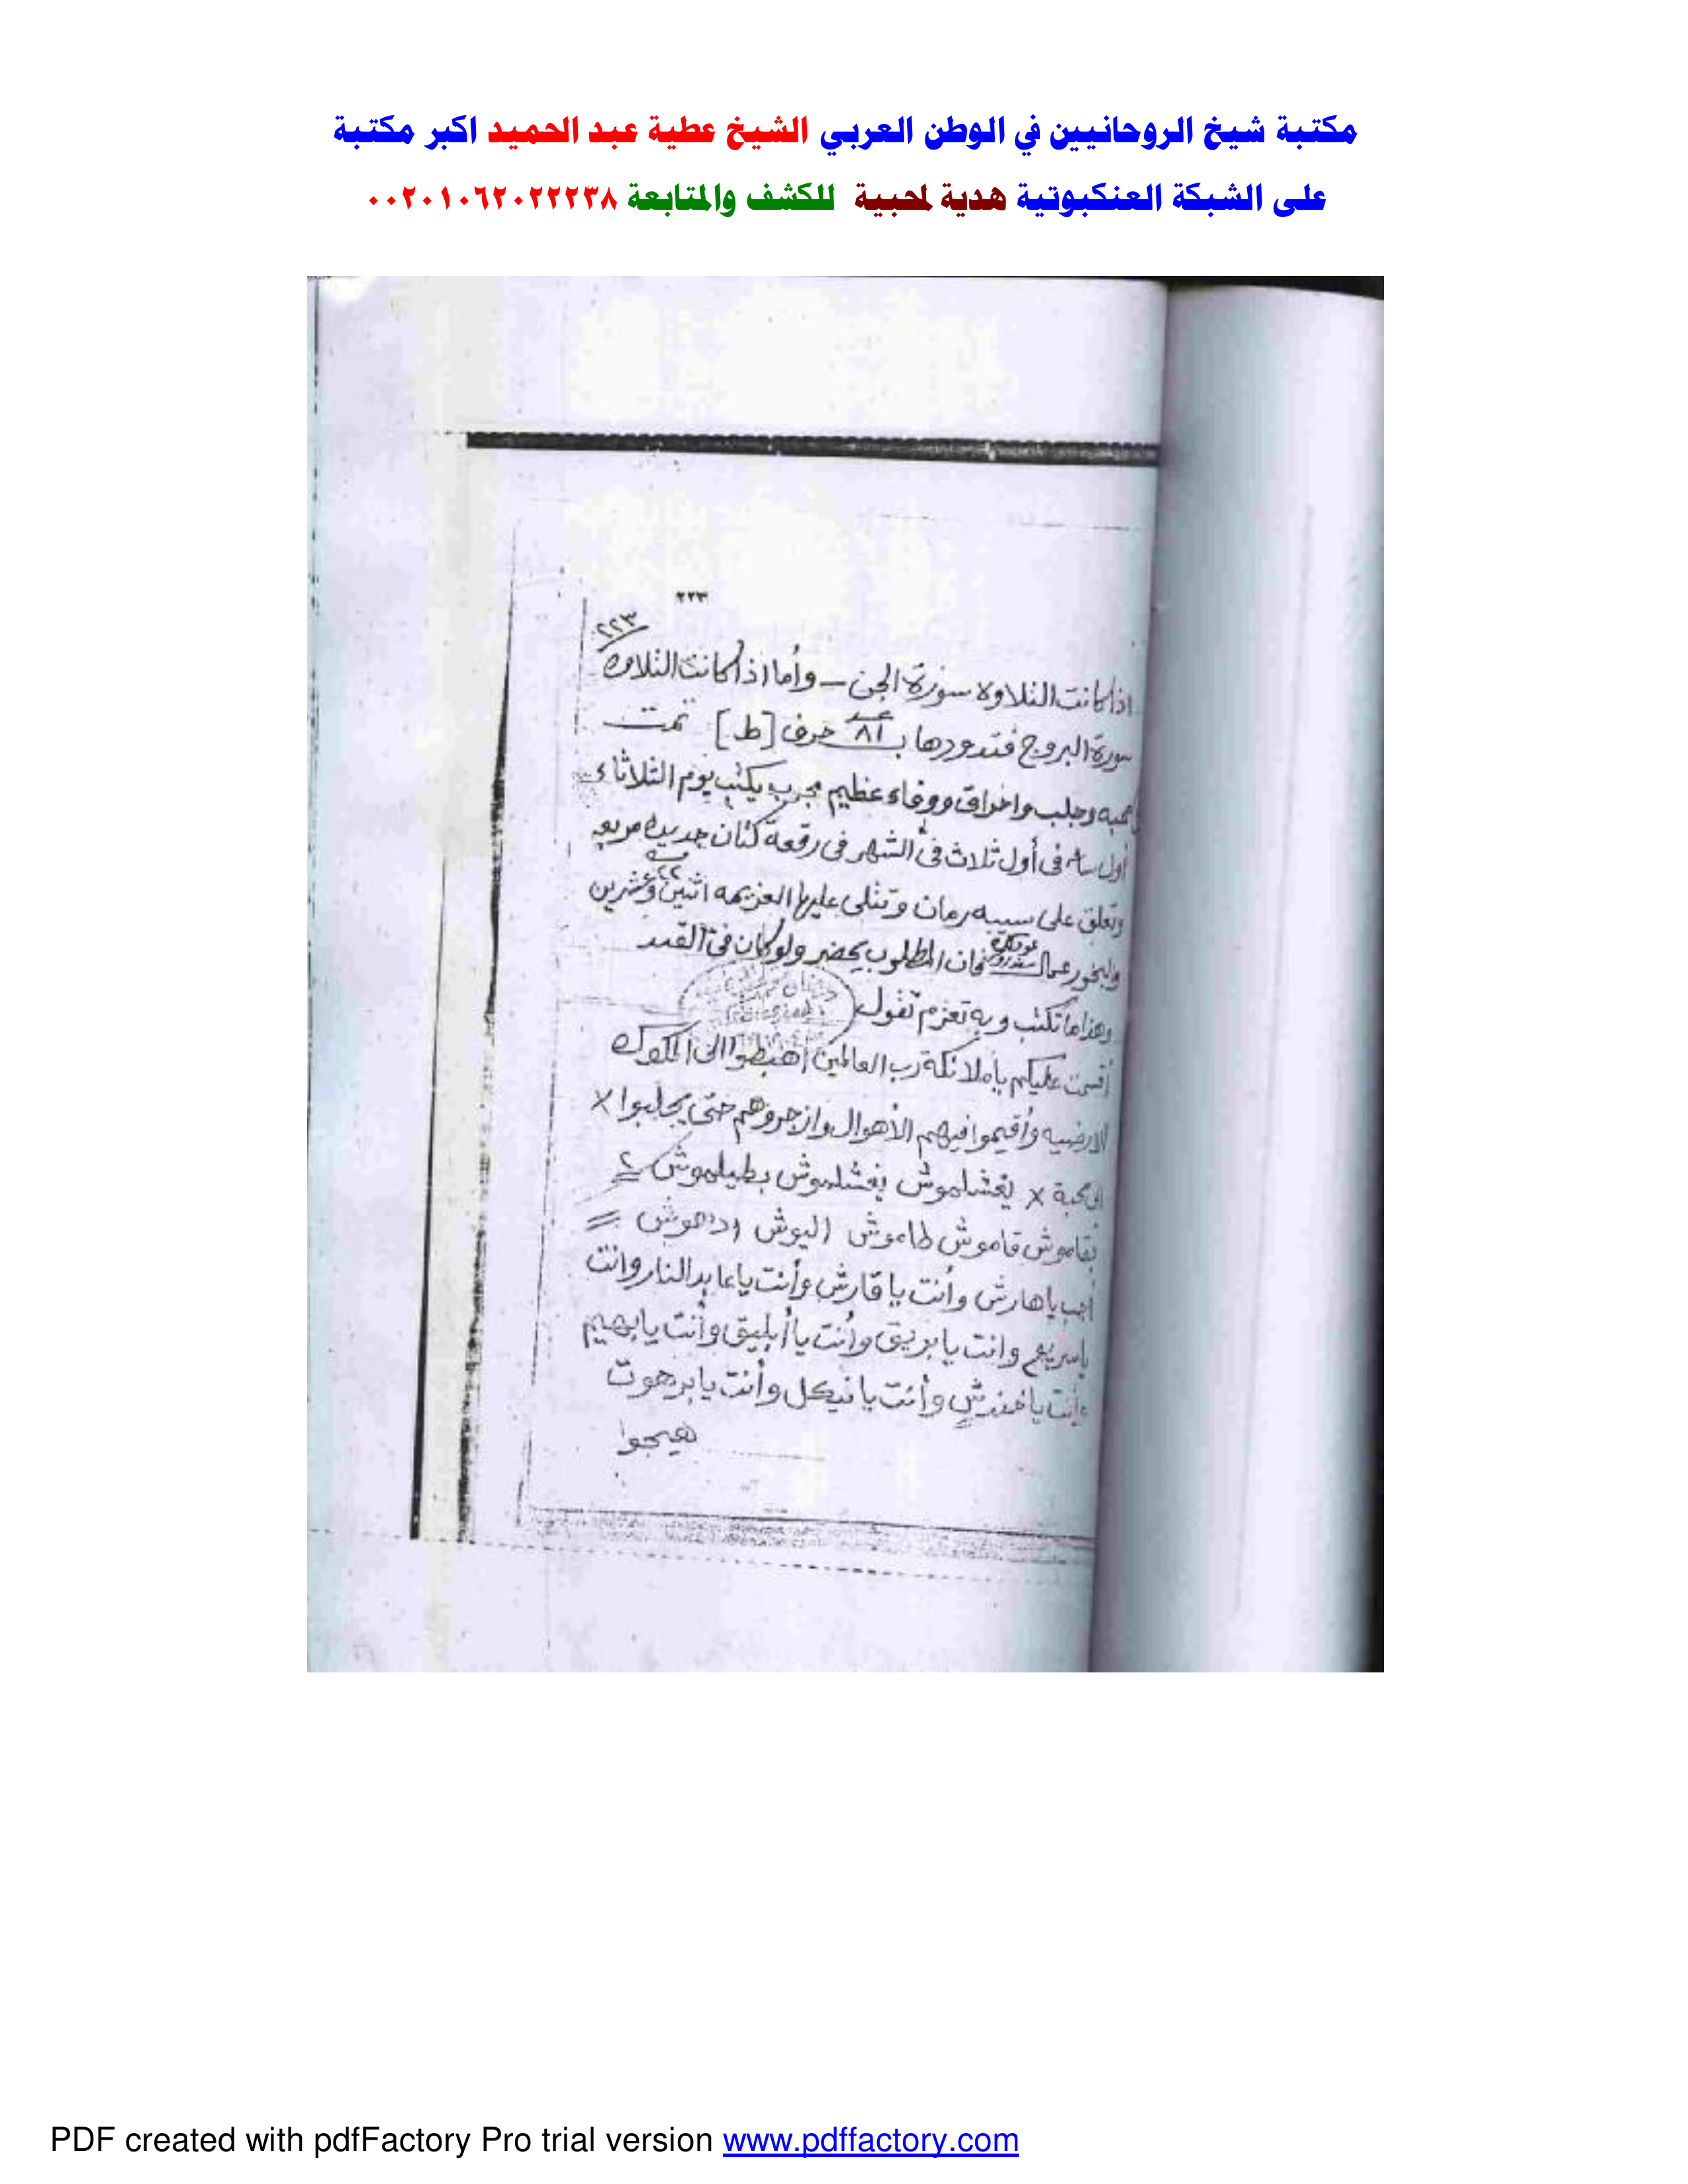 مكتبة شيخ الروحانيين في الوطن العربي الشيخ عطية عبد الحميد اكبر مكتبة
على الشبكة العنكبوتية هدية لمحبية للكشف والمتابعة ٠٠٢٠١٠٦٢٠٢٢٢٣٨
٢٢٣
٢٢٣
اذا كانت التلاوه سورة الجن - وأما اذا كانت التلاوه
سورة البروج فتدورها ب ٨١ حرف [ط] تمت
محبه وجلب واحراق ووفاء عظيم مجرب يكتب يوم الثلاثاء
أول ساعه فى أول ثلاث فى الشهر فى رقعة كتان جديده مربعه
وتعلق على سيبه رمان وتتلى عليها العزيمه اثنين وعشرين
والبخور عمال فان المطلوب يحضر ولو كان فى القيد
وهذا ما تكتب وبه تعزم تقول
أقسمت عليكم يا ملائكة رب العالمين اهبطوا الى الملوك
الارضيه وأقيموا فيهم الأهوال وازجروهم حتى يجلبوا X
الى محبة X يغشلموش بغشلموش بطيلموش ٢
بقاموش قاموش طاموش اليوش
أجب يا هارش وأنت يا قارش وأنت يا عابد النار وانت
يا سريع وانت يا بريق وأنت يا أبليق وأنت يا بهيم
وأنت يا خندش وأنت يا نيكل وأنت يا برهوت
هيجوا
PDF created with pdfFactory Pro trial version www.pdffactory.com